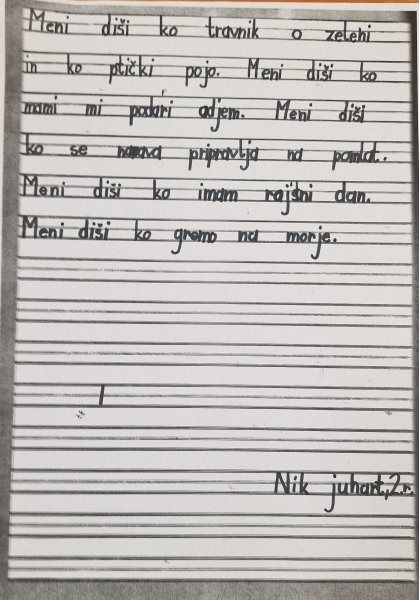 Meni diši ko travnik o zeleni
in ko ptički pojo. Meni diši ko
mami mi podari odjem. Meni diši
ko se narava pripravlja na pomlat.
Meni diši ko imam rojstni dan.
Meni diši ko gremo na morje.
Nik juhart, 2.r.